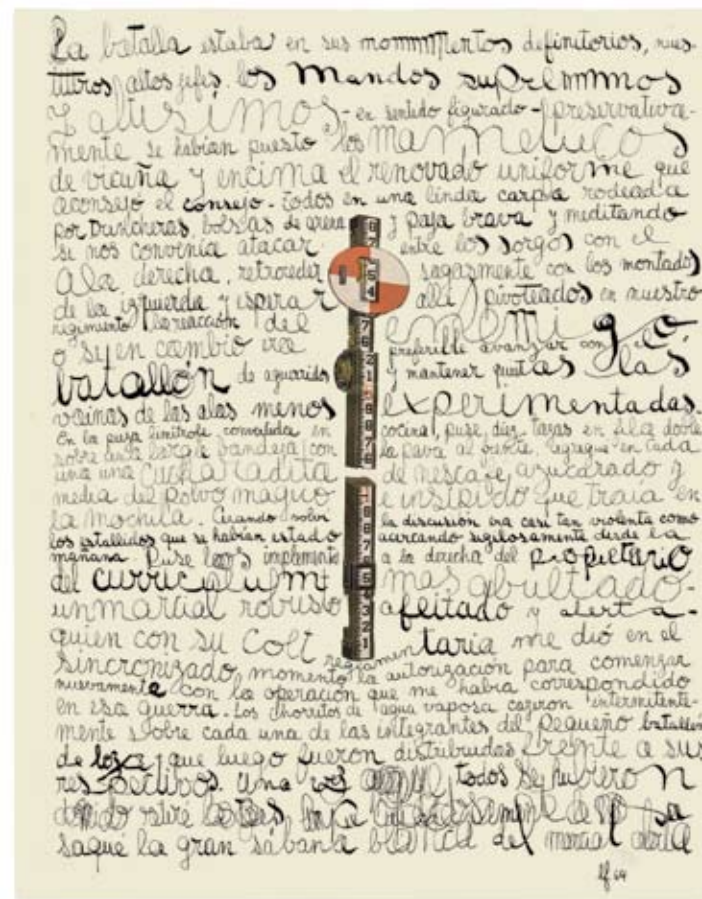 La batalla estaba en sus mommmmentos definitorios, nues-
ttttros altos jefes. los Mandos supremmmos
y altísimos - en sentido figurado - preservativa-
mente se habían puesto los mamelucos
de vicuña y encima el renovado uniforme que
aconsejó el consejo. todos en una linda carpa rodeada
por trincheras bolsas de arena y paja brava y meditando
si nos convenía atacar entre los sorgos con el
ala derecha, retroceder sagazmente con los montados
de la izquierda y esperar allí pivoteados en nuestro
regimiento la reacción del enemigo
o si en cambio era preferible avanzar con el
batallón de aguaridos y mantener quietas las
vainas de las alas menos experimentadas.
En la pieza limítrofe convertida en cocina, puse diez tazas en fila doble
sobre una large bandeja con la pava al frente. agregué en cada
una una cucharadita de nescafe, azucarado y
media del polvo magno e insípido que traía en
la mochila. Cuando volví la discusión era casi tan violenta como
los estallidos que se habían estado acercando sigilosamente desde la
mañana. Puse los implementos a la derecha del propietario
del curriculummt mas abultado.
un marcial robusto afeitado y alerta-
quien con su Colt reglamentaria me dió en el
sincronizado momento la autorización para comenzar
nuevamente con la operación que me había correspondido
en esa guerra. Los chorritos de agua vaposa cayeron intermitente-
mente sobre cada una de las integrantes del pequeño batallón
de loza, que luego fueron distribuidas frente a sus
respectivos. Una vez todos se hubieron
dormido retiré las tazas
saque la gran sábana blanca del
lf 64